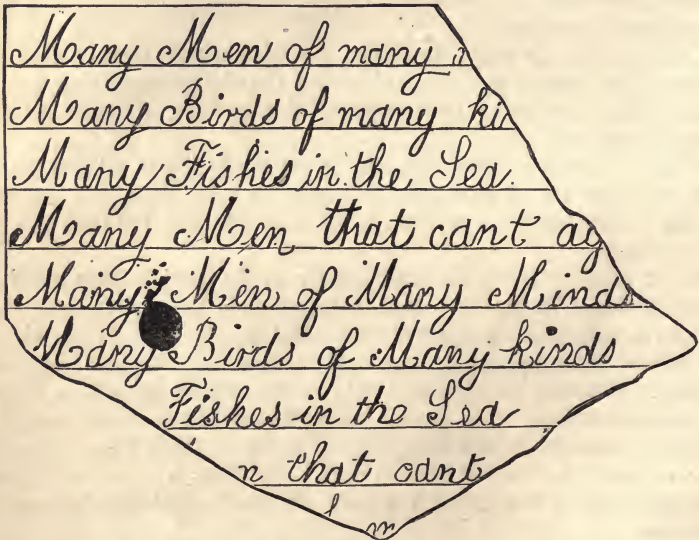 Many Men of many
Many Birds of many kin
Many Fishes in the Sea.
Many Men that cant ag
Many Men of Many Minds
Many Birds of Many kinds
Fishes in the Sea
n that cant
m